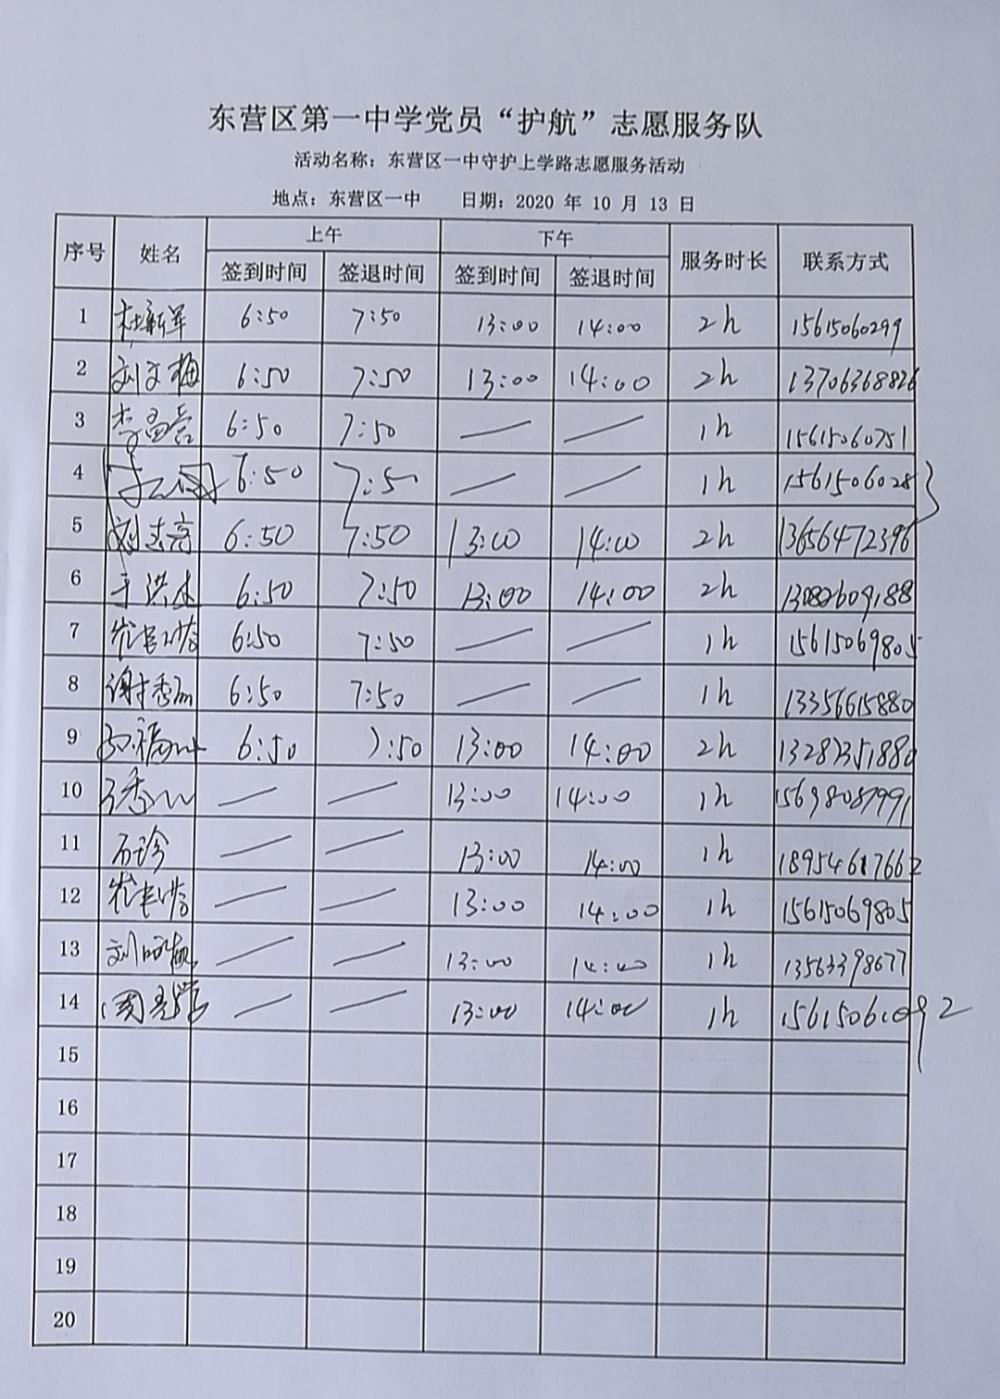 东营区第一中学党员“护航”志愿服务队
活动名称：东营区一中守护上学路志愿服务活动
地点：东营区一中 日期：2020 年 10 月 13 日
序号 姓名 上午 下午 服务时长 联系方式
签到时间 签退时间 签到时间 签退时间
1 杜新军 6:50 7:50 13:00 14:00 2h 15615060299
2 刘文梅 6:50 7:50 13:00 14:00 2h 13706368826
3 李孟亮 6:50 7:50 — — 1h 15615060751
4 6:50 7:50 — — 1h 1561506028
5 刘志亮 6:50 7:50 13:00 14:00 2h 13656472396
6 于洪 6:50 7:50 13:00 14:00 2h 13082609188
7 6:50 7:50 — — 1h 15615069805
8 谢秀 6:50 7:50 — — 1h 13356615880
9 6:50 7:50 13:00 14:00 2h 13282351880
10 — — 13:00 14:00 1h 15698087991
11 石珍 — — 13:00 14:00 1h 18954617662
12 — — 13:00 14:00 1h 15615069805
13 刘 — — 13:00 14:00 1h 13563398677
14 — — 13:00 14:00 1h 15615061092
15
16
17
18
19
20